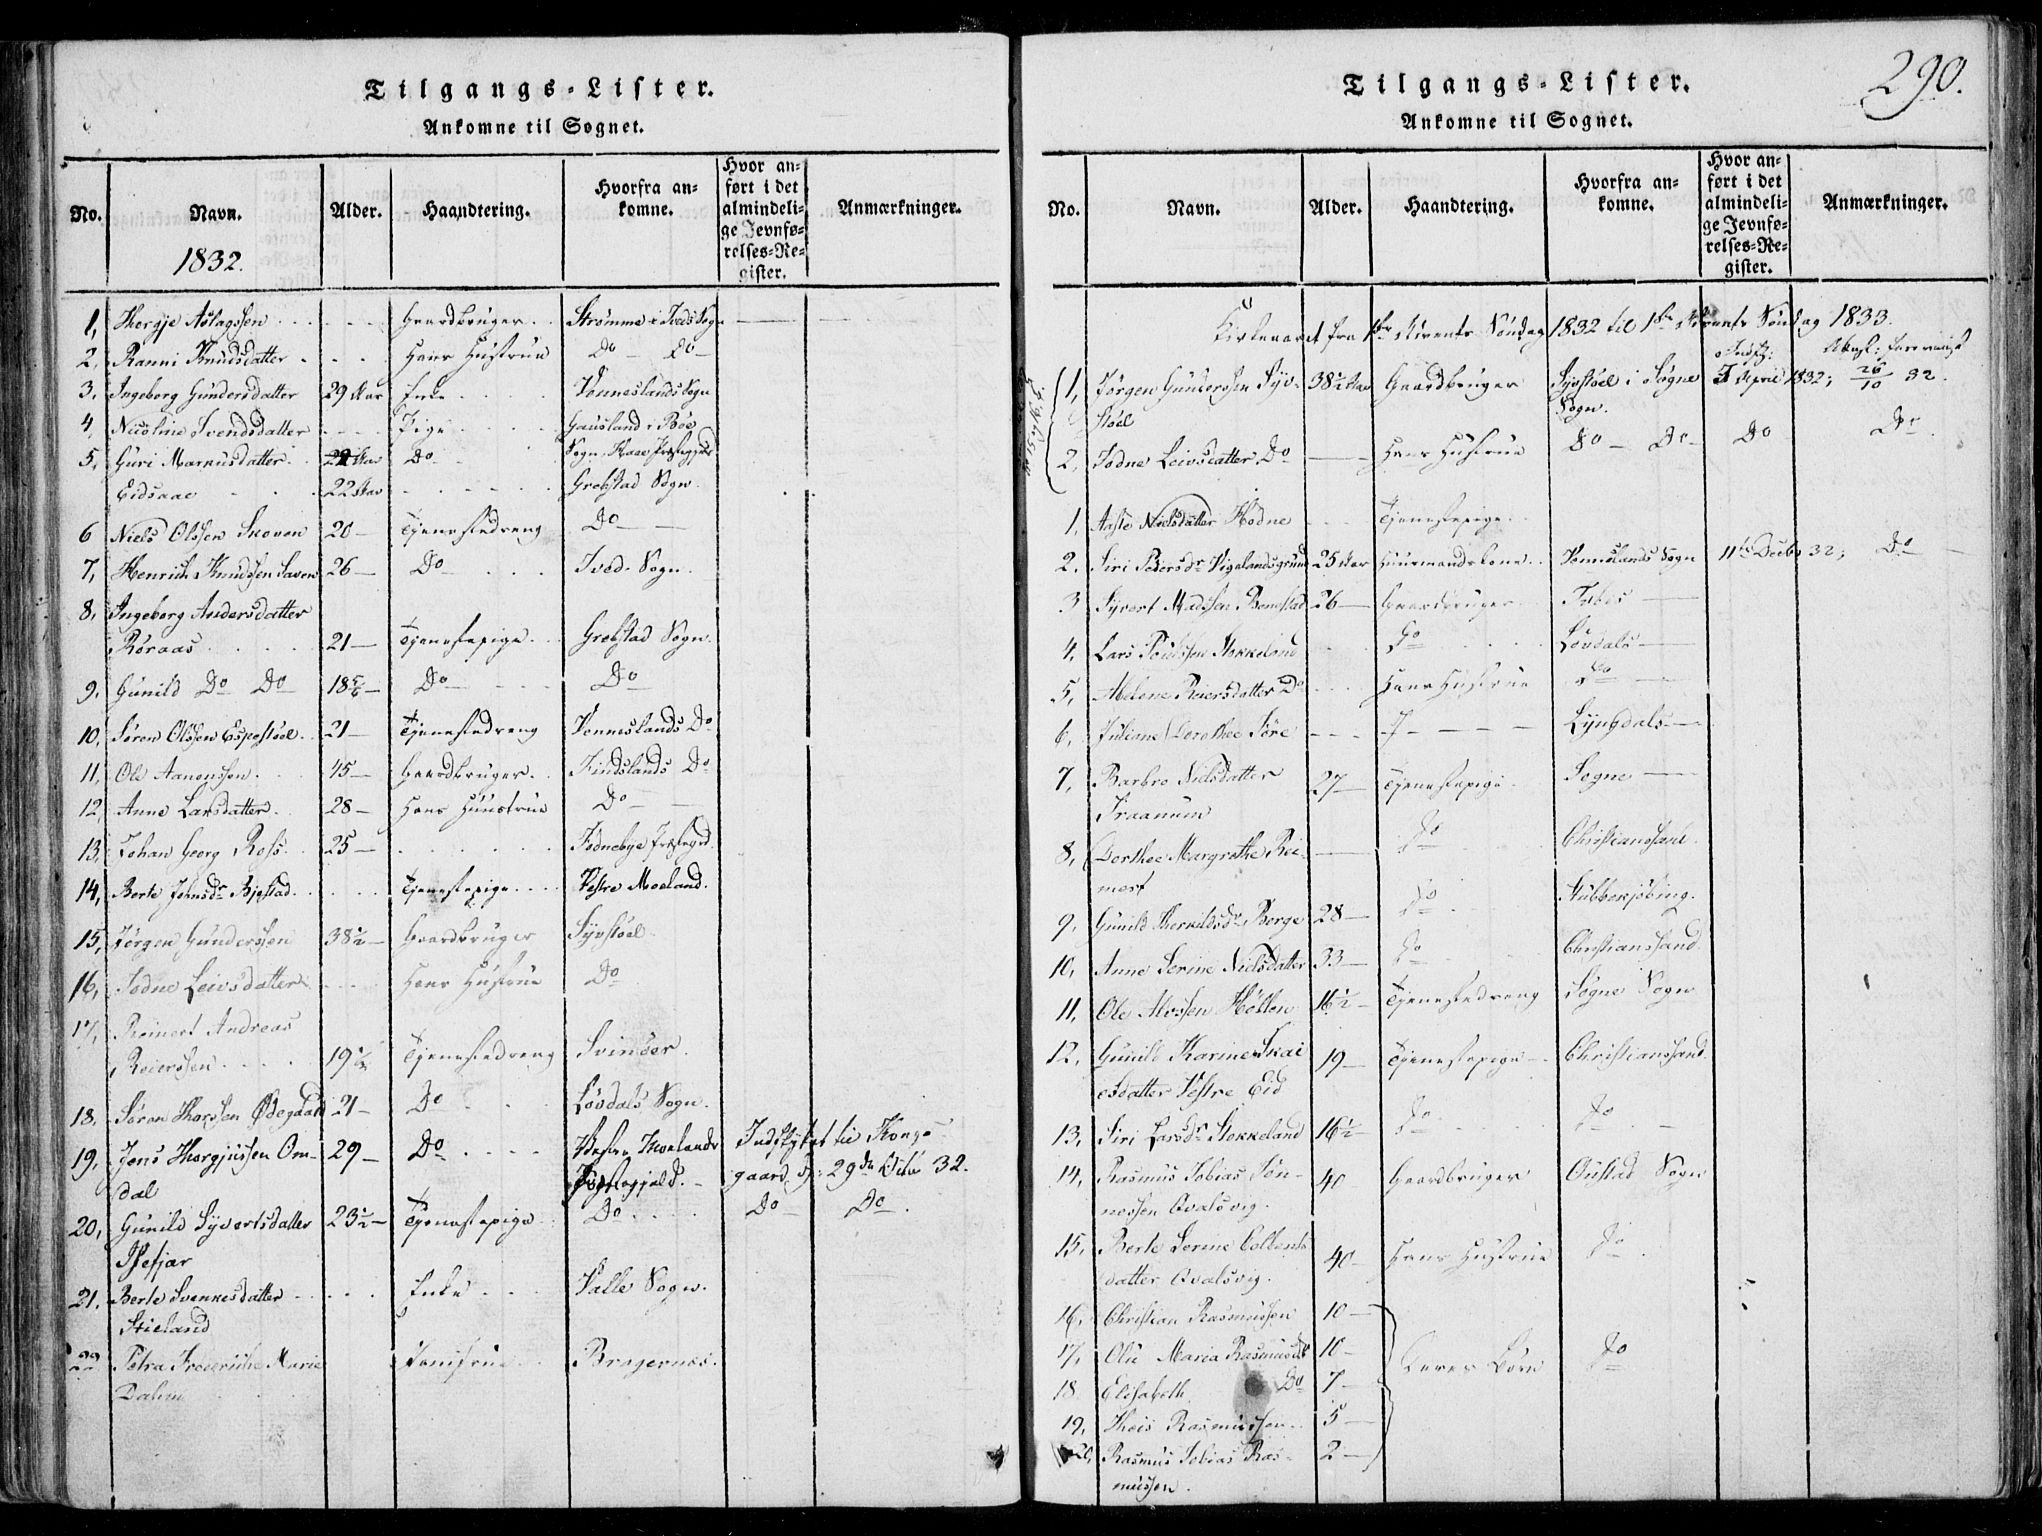 Tilgangs-Lister.
Ankomne til Sognet.
No.
Navn.
Alder.
Haandtering.
Hvorfra an-
komne.
Hvor an-
ført i det
almindeli-
ge Jevnfø-
relses-Re-
gister.
Anmærkninger.
1832.
1, Thorgje Aslagssen Gaardbruger Strømme i Tveds Sogn
2, Ranni Knudsdatter Hans Hustrue Do Do
3, Ingeborg Gundersdatter 29 Aar Enke Venneslands Sogn
4, Nicoline Svendsdatter Pige Gausland i Bøe
5, Guri Markusdatter Do Sogn,
Eidsaae 22 Aar Grebstad Sogn.
6 Niels Olssen Skoven 20 Tjenestedreng Do
7, Henrich Knudssen 26 Do Tved Sogn
8, Ingeborg Andersdatter
Røraas 21 Tjenestepige Grebstad Sogn.
9, Gunild Do Do 18 5/6 Do Do
10, Søren Olssen Espestøel 21 Tjenestedreng Venneslands Do
11, Ole Aanenssen 45 Gaardbruger Findslands Do
12, Anne Larsdatter 28 Hans Huustrue Do
13, Johan Georg Ross 25
14, Berte Jensdr Bjestad Tjenestepige Vestre Moeland.
15, Jørgen Gunderssen 38 1/2 Gaardbruger Syvstøel
16, Todne Leivsdatter Hans Hustrue Do
17, Reinert Andreas
Reierssen 19 1/2 Tjenestedreng Svindør
18, Søren Thorssen Ødegaard 21 Do Løvdals Sogn.
19, Jens Thorgjussen Om- 29 Do Vestre Moelands Indflyttet til Konge-
dal Præstegjeld. gaard, d: 29de Octbr 32.
20, Gunild Syvertsdatter 23 1/2 Tjenestepige Do Do Do
Isefjær
21, Berte Svenkesdatter Enke Valle Sogn.
Stieland
22 Petra Frederiche Marie Jomfrue Bragernes.
Dahm
290.
Tilgangs-Lister.
Ankomne til Sognet.
No.
Navn.
Alder.
Haandtering.
Hvorfra an-
komne.
Hvor an-
ført i det
almindeli-
ge Jevnfø-
relses-Re-
gister.
Anmærkninger.
Kirkeaaret fra 1ste Advents Søndag 1832 til 1ste Advents Søndag 1833.
1, Jørgen Gunderssen Syv- 38 1/2 Aar Gaardbruger Syvstøel i Søgne April 1832; 26/10 32.
støel Sogn.
2, Todne Leivsdatter Do Hans Hustrue Do Do Do Do
1, Aaste Nielsdatter Hodne Tjenestepige
2, Siri Pedersdr Vigelandsgrund 25 Aar Huusmandskone Venneslands Sogn 11te Decbr 32; Do
3 Syvert Madssen Benestad 26 Gaardbruger Tveds
4, Lars Poulssen Stokkeland Do Løvdals
5, Abelone Reiersdatter Do Hans Hustrue Do
6, Juliane Dorothee Søre Lyngdals
7, Barbro Nielsdatter 27 Tjenestepige Søgne
Traanum
8, Dorthee Margrethe Rei- Do Christianssand.
mert
9, Gunild Therkildsdr Berge 28 Do Stubbekjøbing.
10, Anne Serine Nielsdatter 33 Do Christianssand
11, Ole Alvssen Høllen 16 1/2 Tjenestedreng Søgne Sogn
12, Gunild Karine Skai 19 Tjenestepige Christianssand
esdatter Vestre Eid
13, Siri Larsdr Stokkeland 16 1/2 Do Do
14, Rasmus Tobias Jon- 40 Gaardbruger Oustad Sogn
nessen Qvalsvig.
15, Berte Serine 40 Hans Hustrue Do
datter Qvalsvig.
16, Christian Rasmussen 10
17, Olie Maria Rasmusdr 10 Deres Børn Do
18 Elisabeth Do 7
19, Theis Rasmussen 5
20, Rasmus Tobias Ras- 2
mussen.